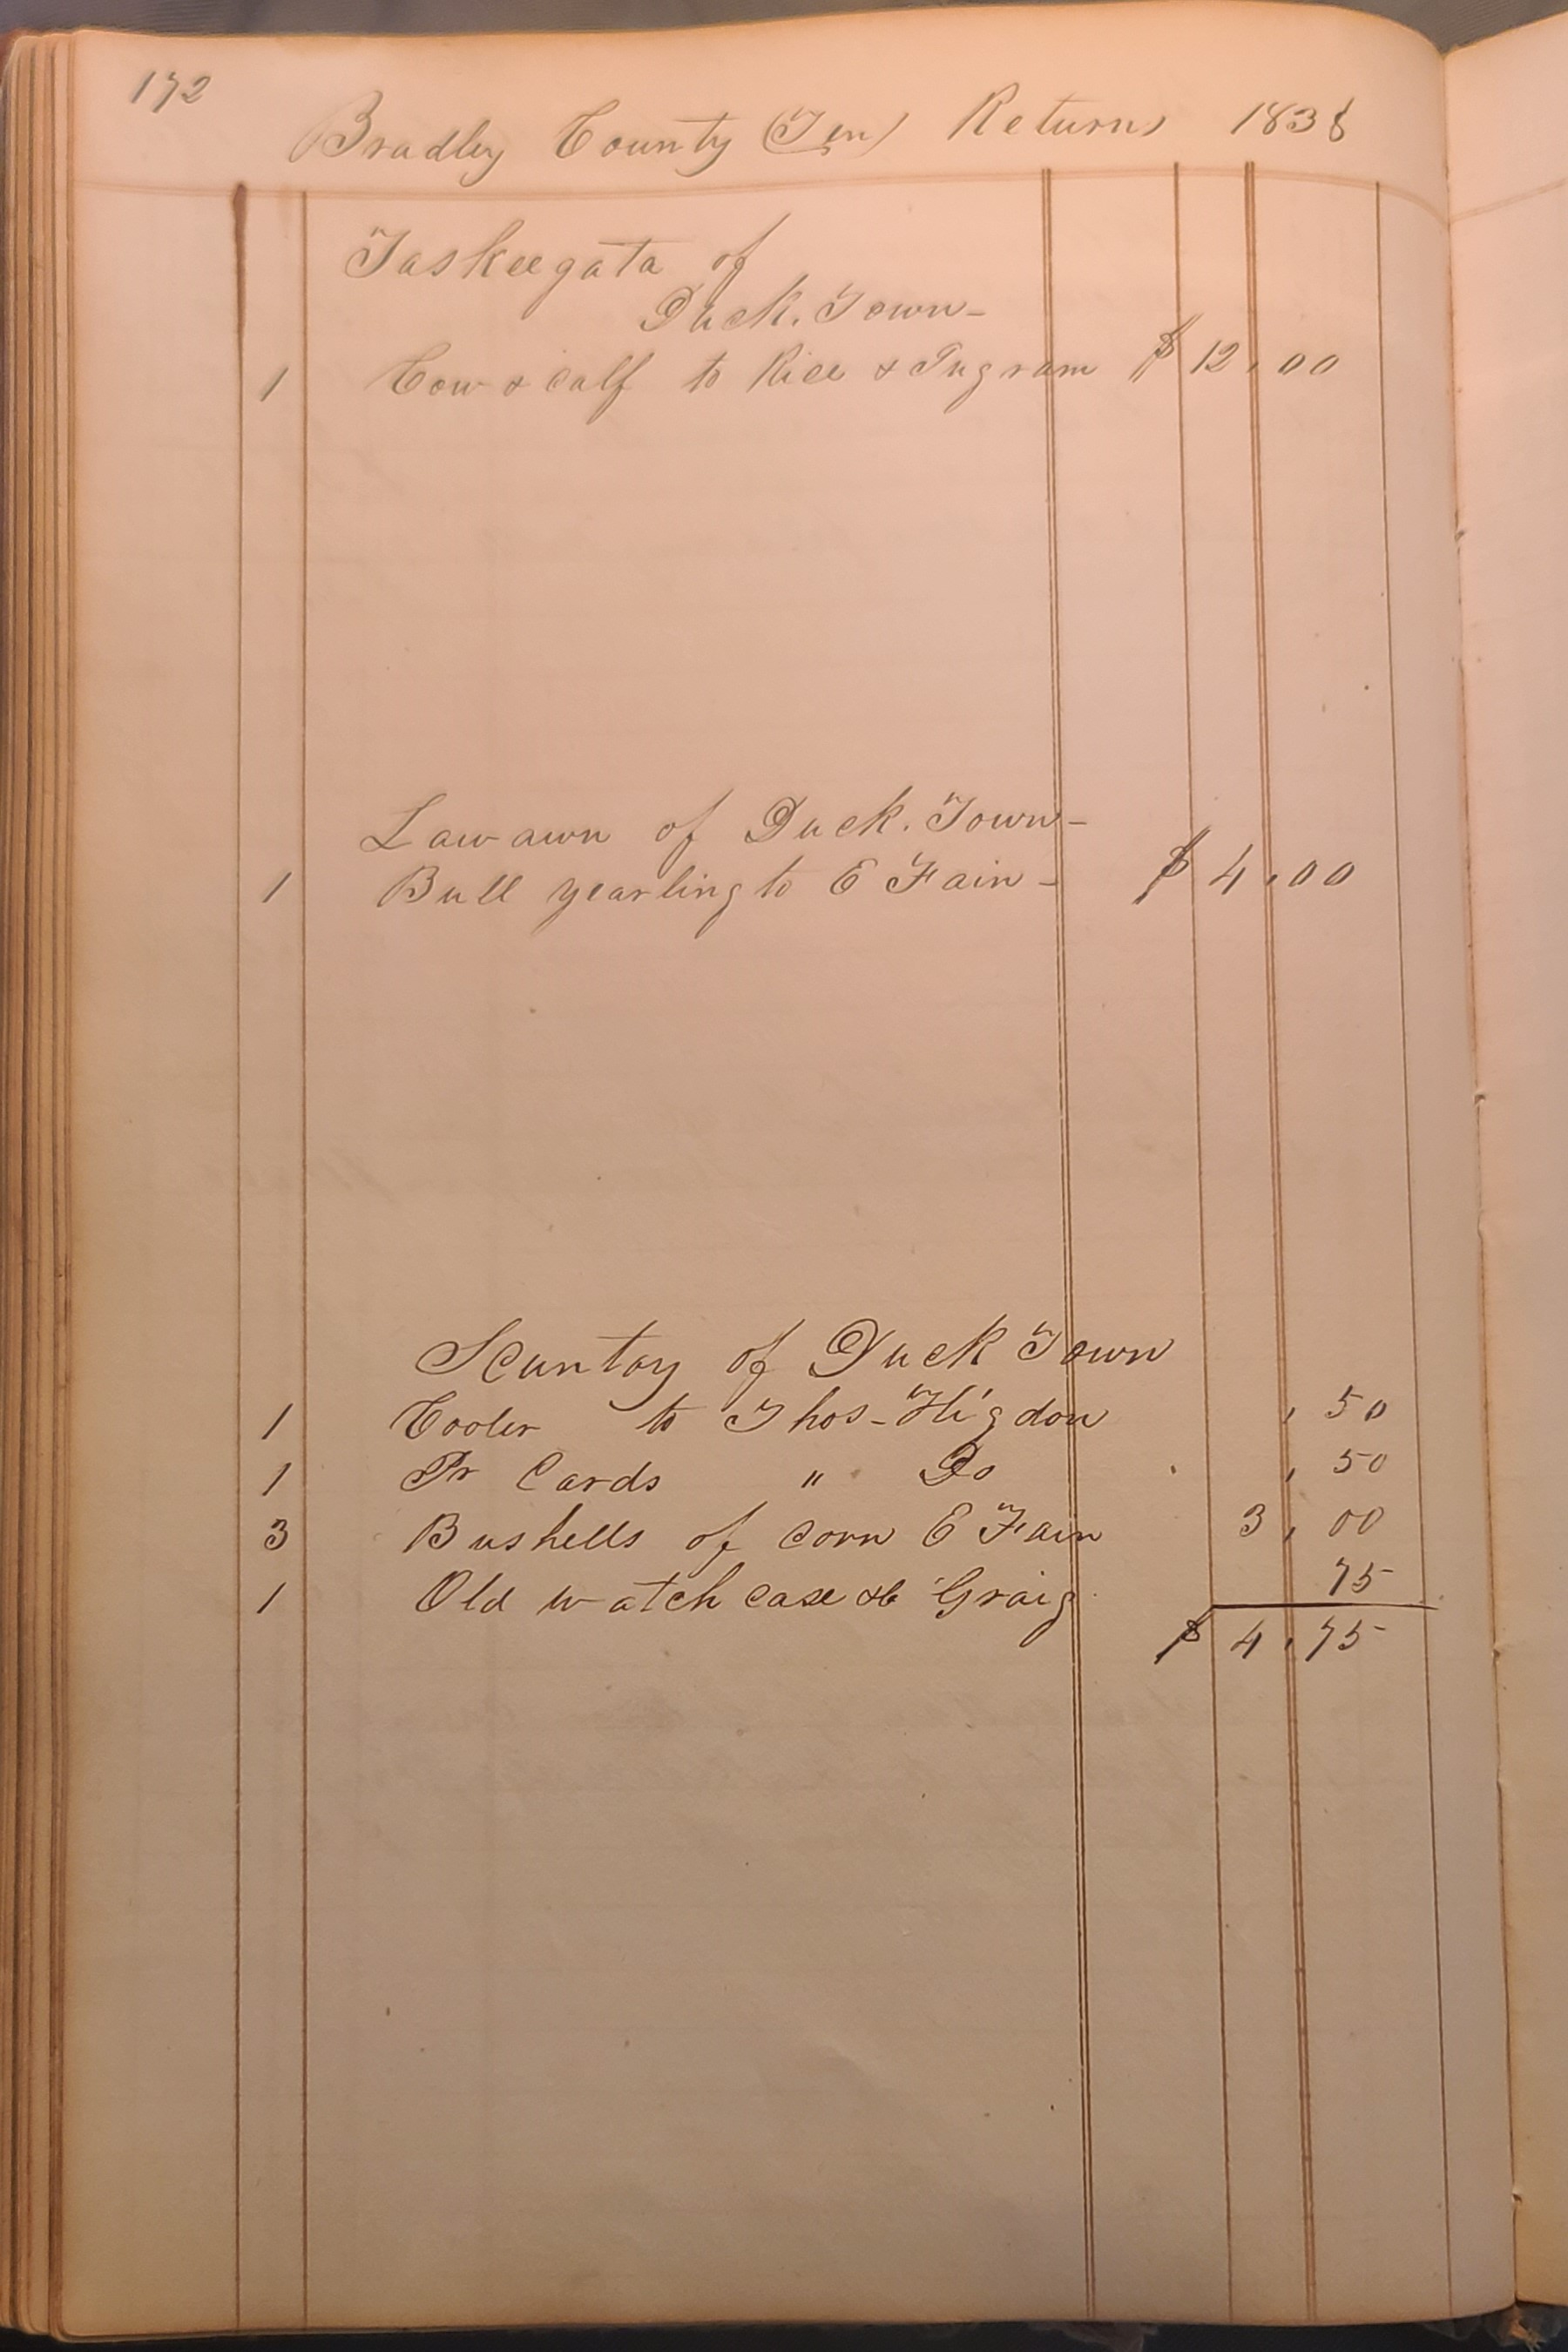 172
Bradley County (Ten) Returns 1838
Taskeegata of
Duck. Town-
1 Cow & Calf to Rice & Ingram $ 12,00
Lawawn of Duck. Town-
1 Bull yearling to E Fain- $ 4,00
of Duck Town
1 Cooler to Thos- Higdon ,50
1 Pr Cards " Do ,50
3 Bushells of Corn E Fain 3,00
1 Old watch case &c Graig 75
$ 4,75